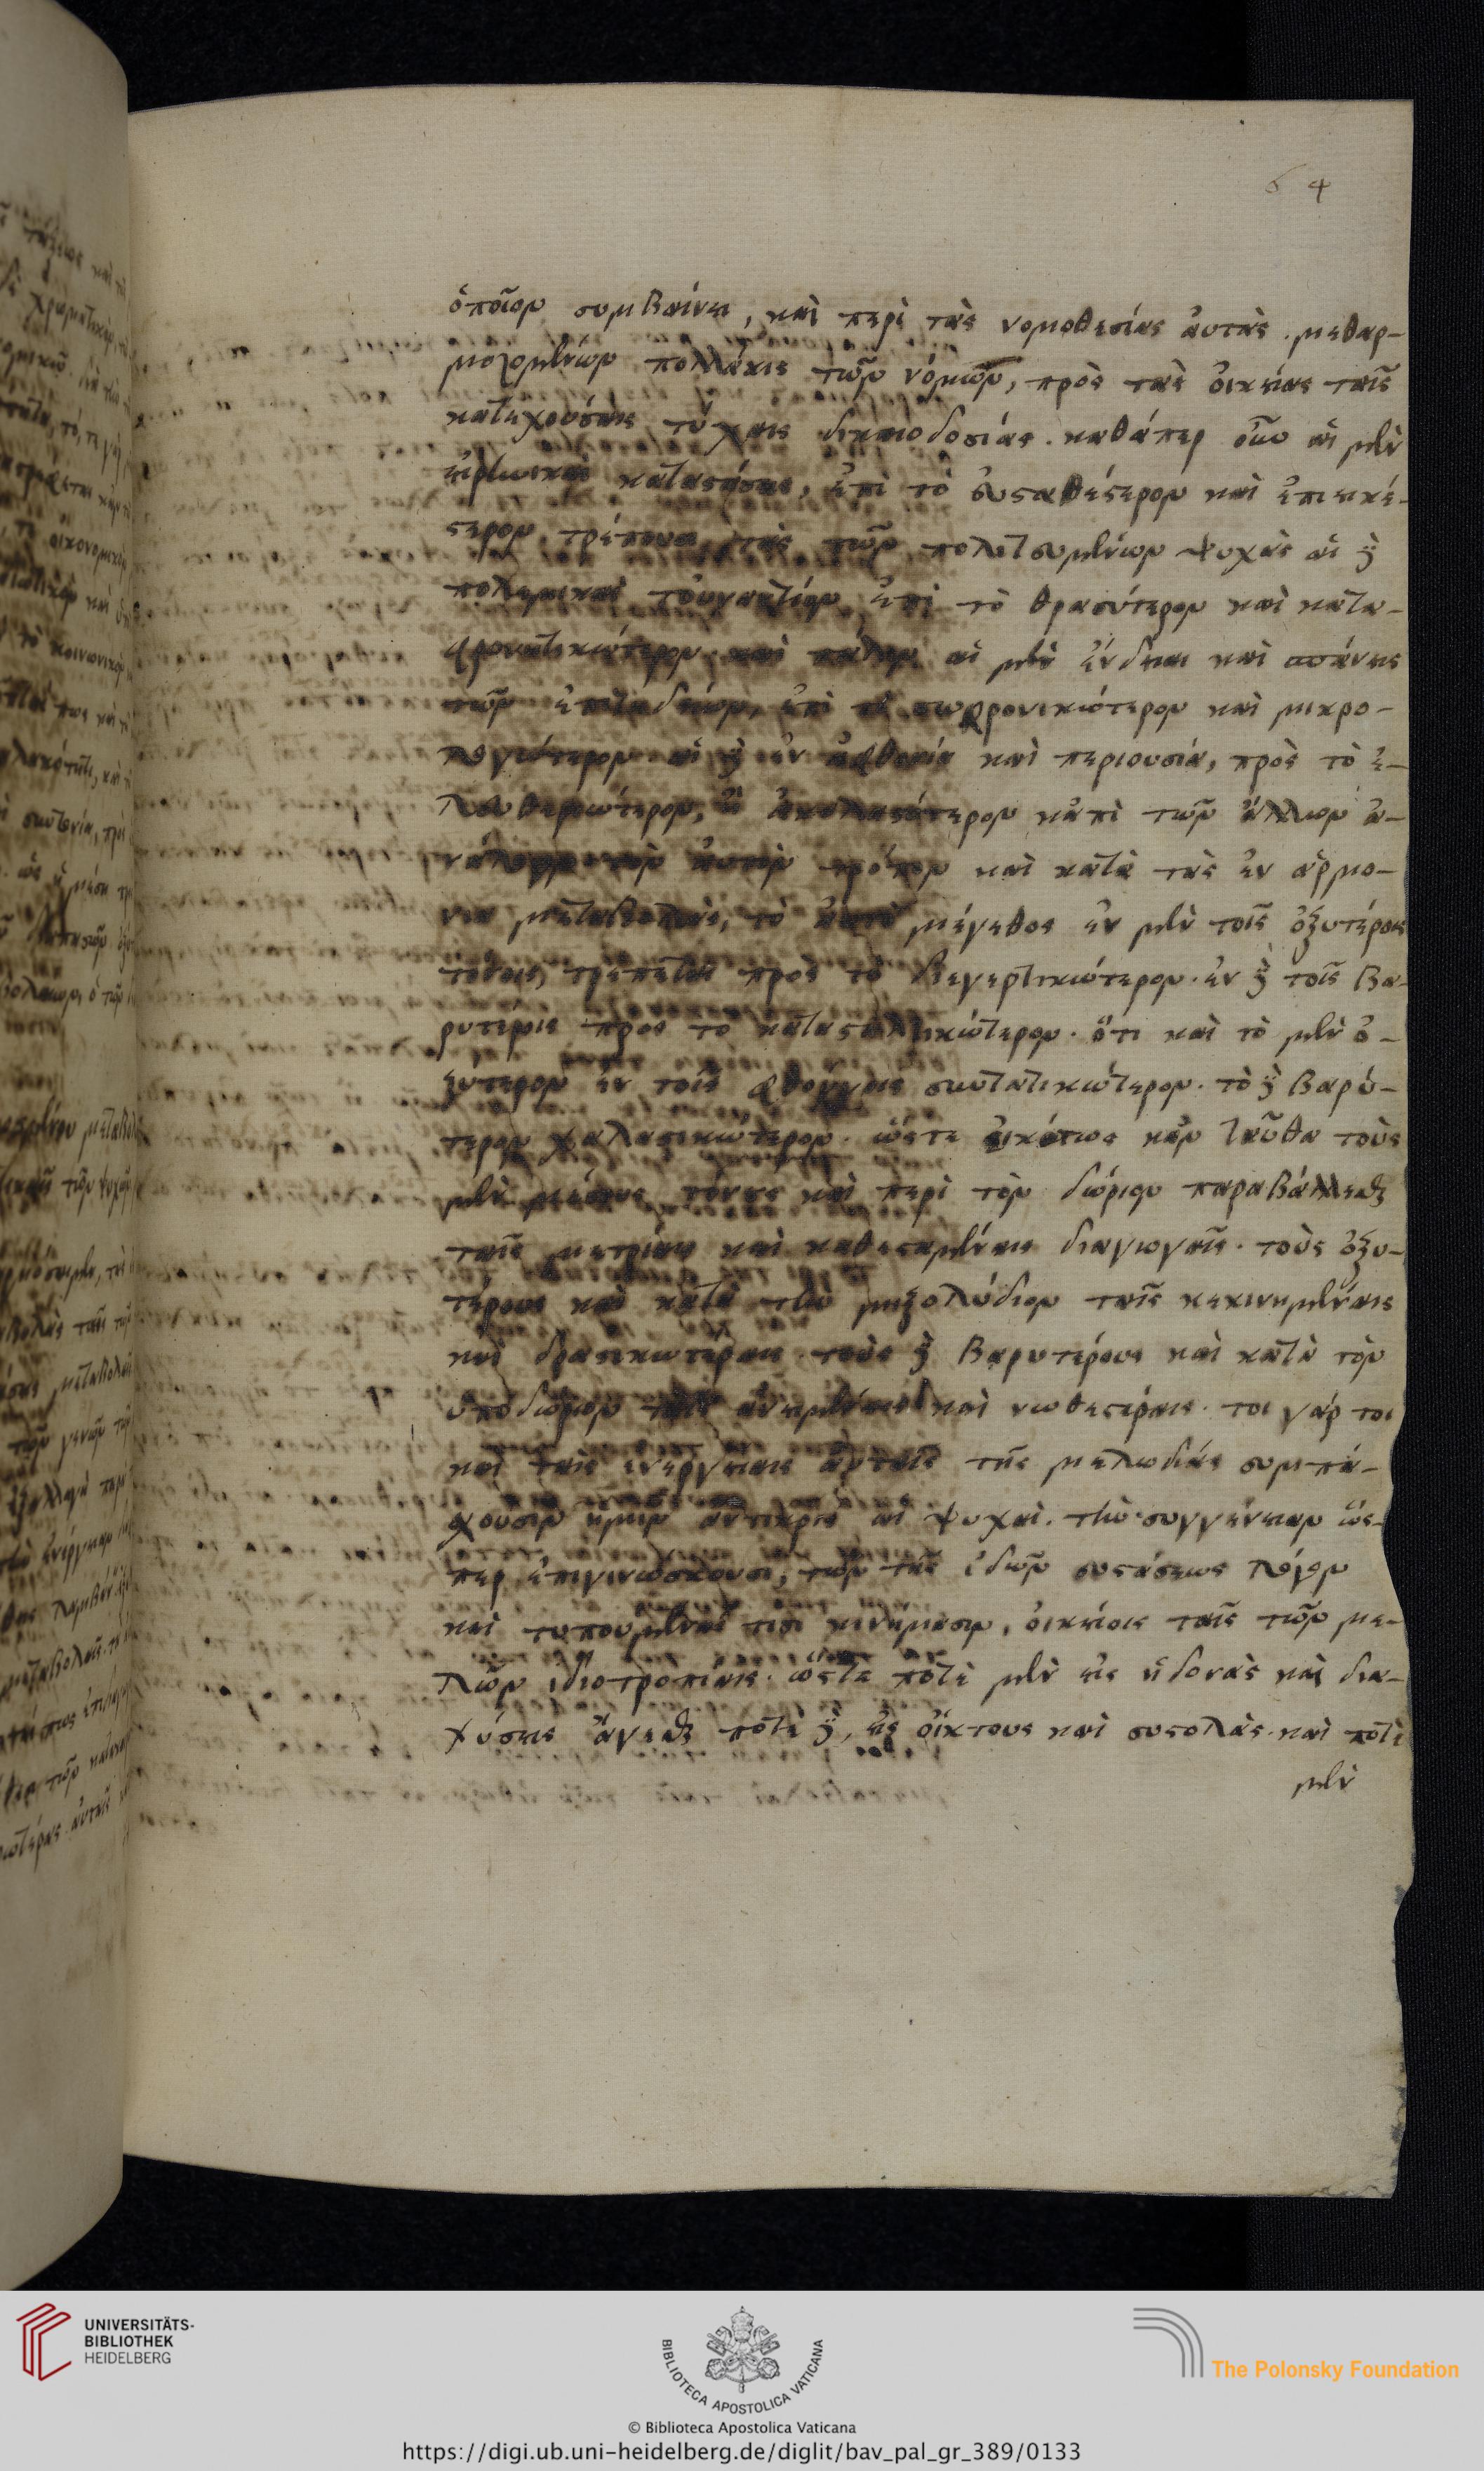 64
ὁποῖον συμβαίνει, καὶ περὶ τὰς νομοθεσίας ἀυτὰς. μεθαρ-
μοζομένων πολλάκις τῶν νόμων, πρὸς τὰς οἰκείας ταῖς
κατεχούσαις τύχαις δικαιοδοσίας. καθάπερ οὖν αἱ μὲν
εἰρηνικαὶ καταστάσεις, ἐπὶ τὸ εὐσταθέστερον καὶ ἐπιεικέ-
στερον τρέπουσι τὰς τῶν πολιτευομένων ψυχὰς αἱ δὲ
πολεμικαὶ τοὐναντίον ἐπὶ τὸ θρασύτερον καὶ κατα-
φρονητικώτερον. καὶ πάλιν αἱ μὲν ἔνδειαι καὶ σπάνεις
τῶν ἐπιτηδείων, ἐπὶ τὸ σωφρονικώτερον καὶ μικρο-
λογώτερον αἱ δὲ ἐν ἀφθονία καὶ περιουσία, πρὸς τὸ ἐ-
λευθεριώτερον, ἢ ἀκολαστότερον κἀπὶ τῶν ἄλλων ἀ-
νάλογον τὸν ἀυτὸν τρόπον καὶ κατὰ τὰς ἐν ἁρμο-
νια μεταβολὰς, τὸ ἀυτὸ μέγεθος ἐν μὲν τοῖς ὀξυτέροις
τόποις, τρέπεται πρὸς τὸ διεγερτικώτερον. ἐν δὲ τοῖς βα-
ρυτέροις πρὸς τὸ κατασταλτικώτερον. ὅτι καὶ τὸ μὲν ὀ-
ξύτερον ἐν τοῖς φθόγγοις συντατικώτερον. τὸ δὲ βαρύ-
τερον χαλαστικώτερον. ὥστε εἰκότως κἀν ταῦθα τοὺς
μὲν μέσους τόνους καὶ περὶ τὸν δώριον παραβάλλεσθαι
ταῖς μετρίαις καὶ καθεσταμέναις διαγωγαῖς. τοὺς ὀξυ-
τέρους καὶ κατὰ τὸν μιξολύδιον ταῖς κεκινημέναις
καὶ δραστικωτέραις. τοὺς δὲ βαρυτέρους καὶ κατὰ τὸν
ὑποδώριον ταῖς ἀνειμέναις καὶ νωθεστέραις. τοι γάρ τοι
καὶ ταῖς ἐνεργείαις ἀυταῖς τῆς μελωδίας συμπά-
σχουσιν ἡμῶν ἄντικρυς αἱ ψυχαὶ. τὴν συγγένειαν ὥς-
περ ἐπιγινώσκουσαι, τῶν τῆς ἰδίων συστάσεως λόγων
καὶ τυπούμεναί τισι κινήμασιν, οἰκείοις ταῖς τῶν με-
λῶν ἰδιοτροπίαις. ὥστε ποτὲ μὲν εἰς ἡδονὰς καὶ δια-
χύσεις ἄγεσθαι ποτὲ δὲ, εἰς οἴκτους καὶ συστολὰς. καὶ ποτὲ
μὲν
UNIVERSITÄTS-
BIBLIOTHEK
HEIDELBERG
BIBLIOTECA APOSTOLICA VATICANA
The Polonsky Foundation
© Biblioteca Apostolica Vaticana
https://digi.ub.uni-heidelberg.de/diglit/bav_pal_gr_389/0133